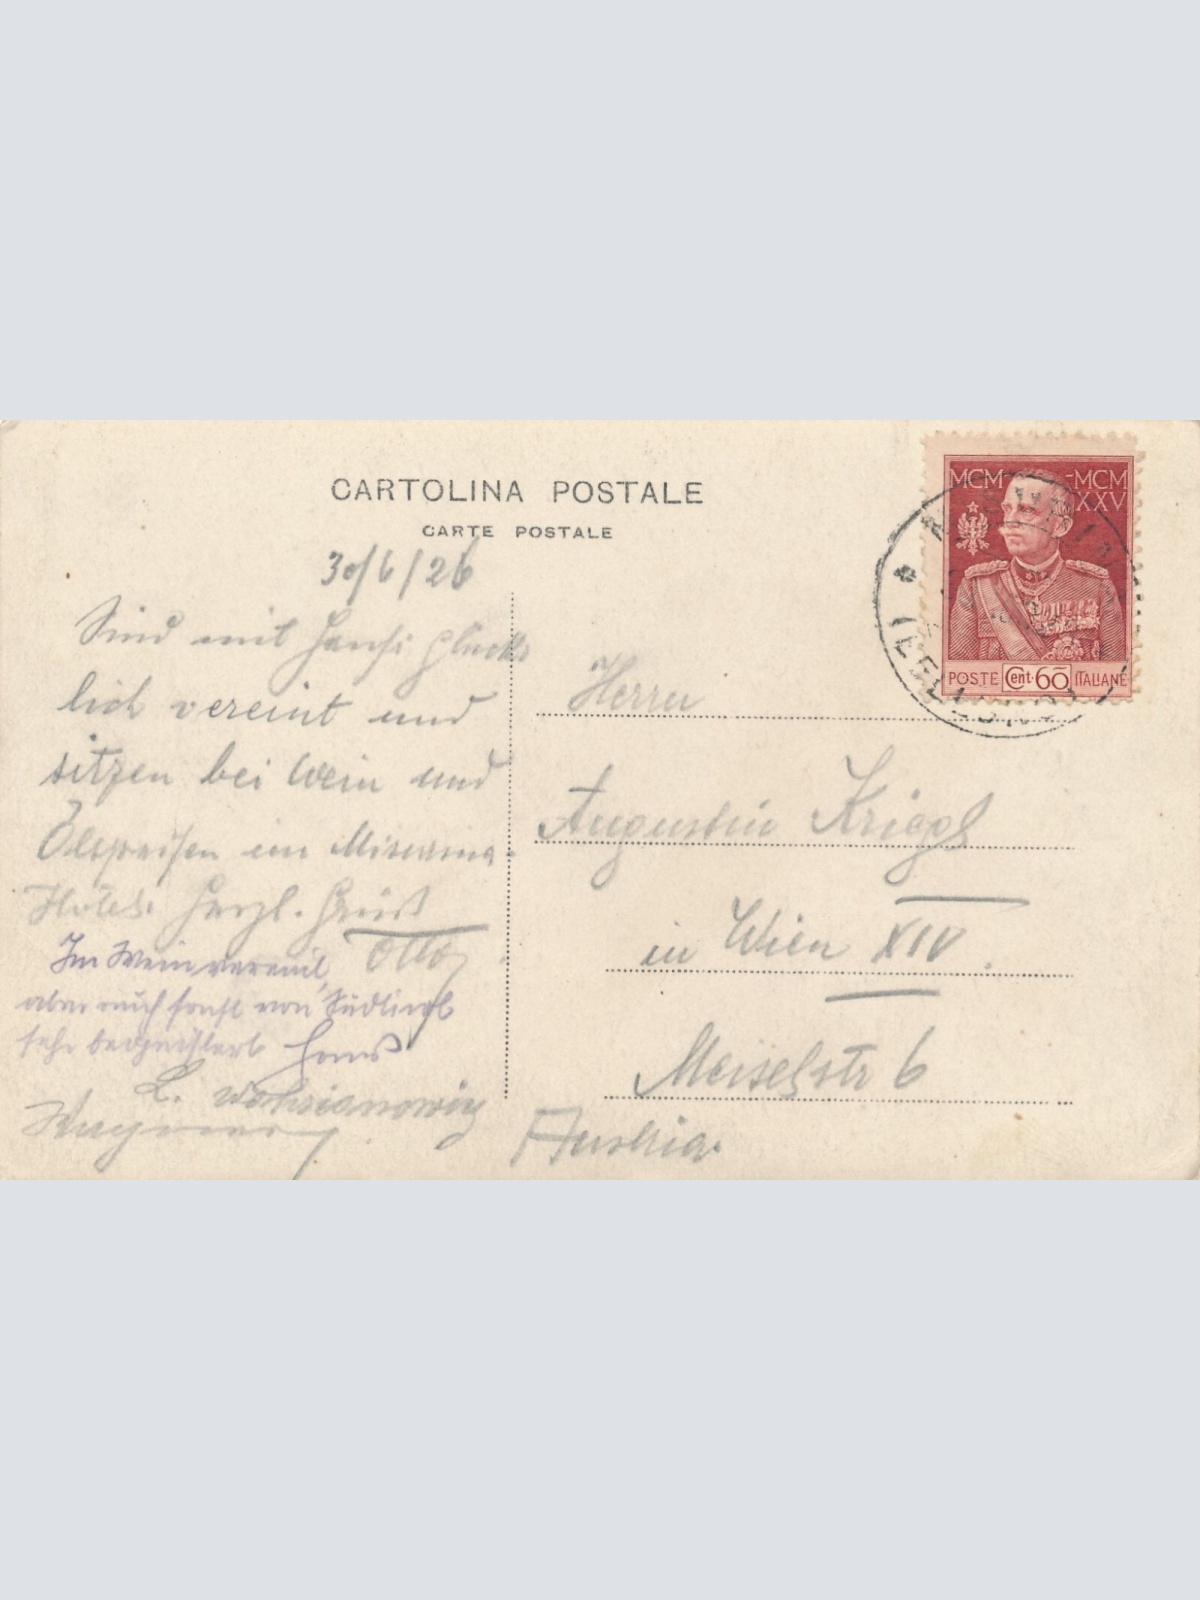 CARTOLINA POSTALE
CARTE POSTALE
MCM MCM
XXV
POSTE Cent. 60 ITALIANE
30/6/26
Sind mit Hansi glück
lich vereint und
sitzen bei Wein und
im Misurina-
Hotel. Herzl. Gruß
Otto
Im Wein vereint,
aber auch sonst von Südtirol
sehr begeistert Hans
L.
Herrn
Augustin Kriegl
in Wien XIV.
Meiselstr 6
Austria.